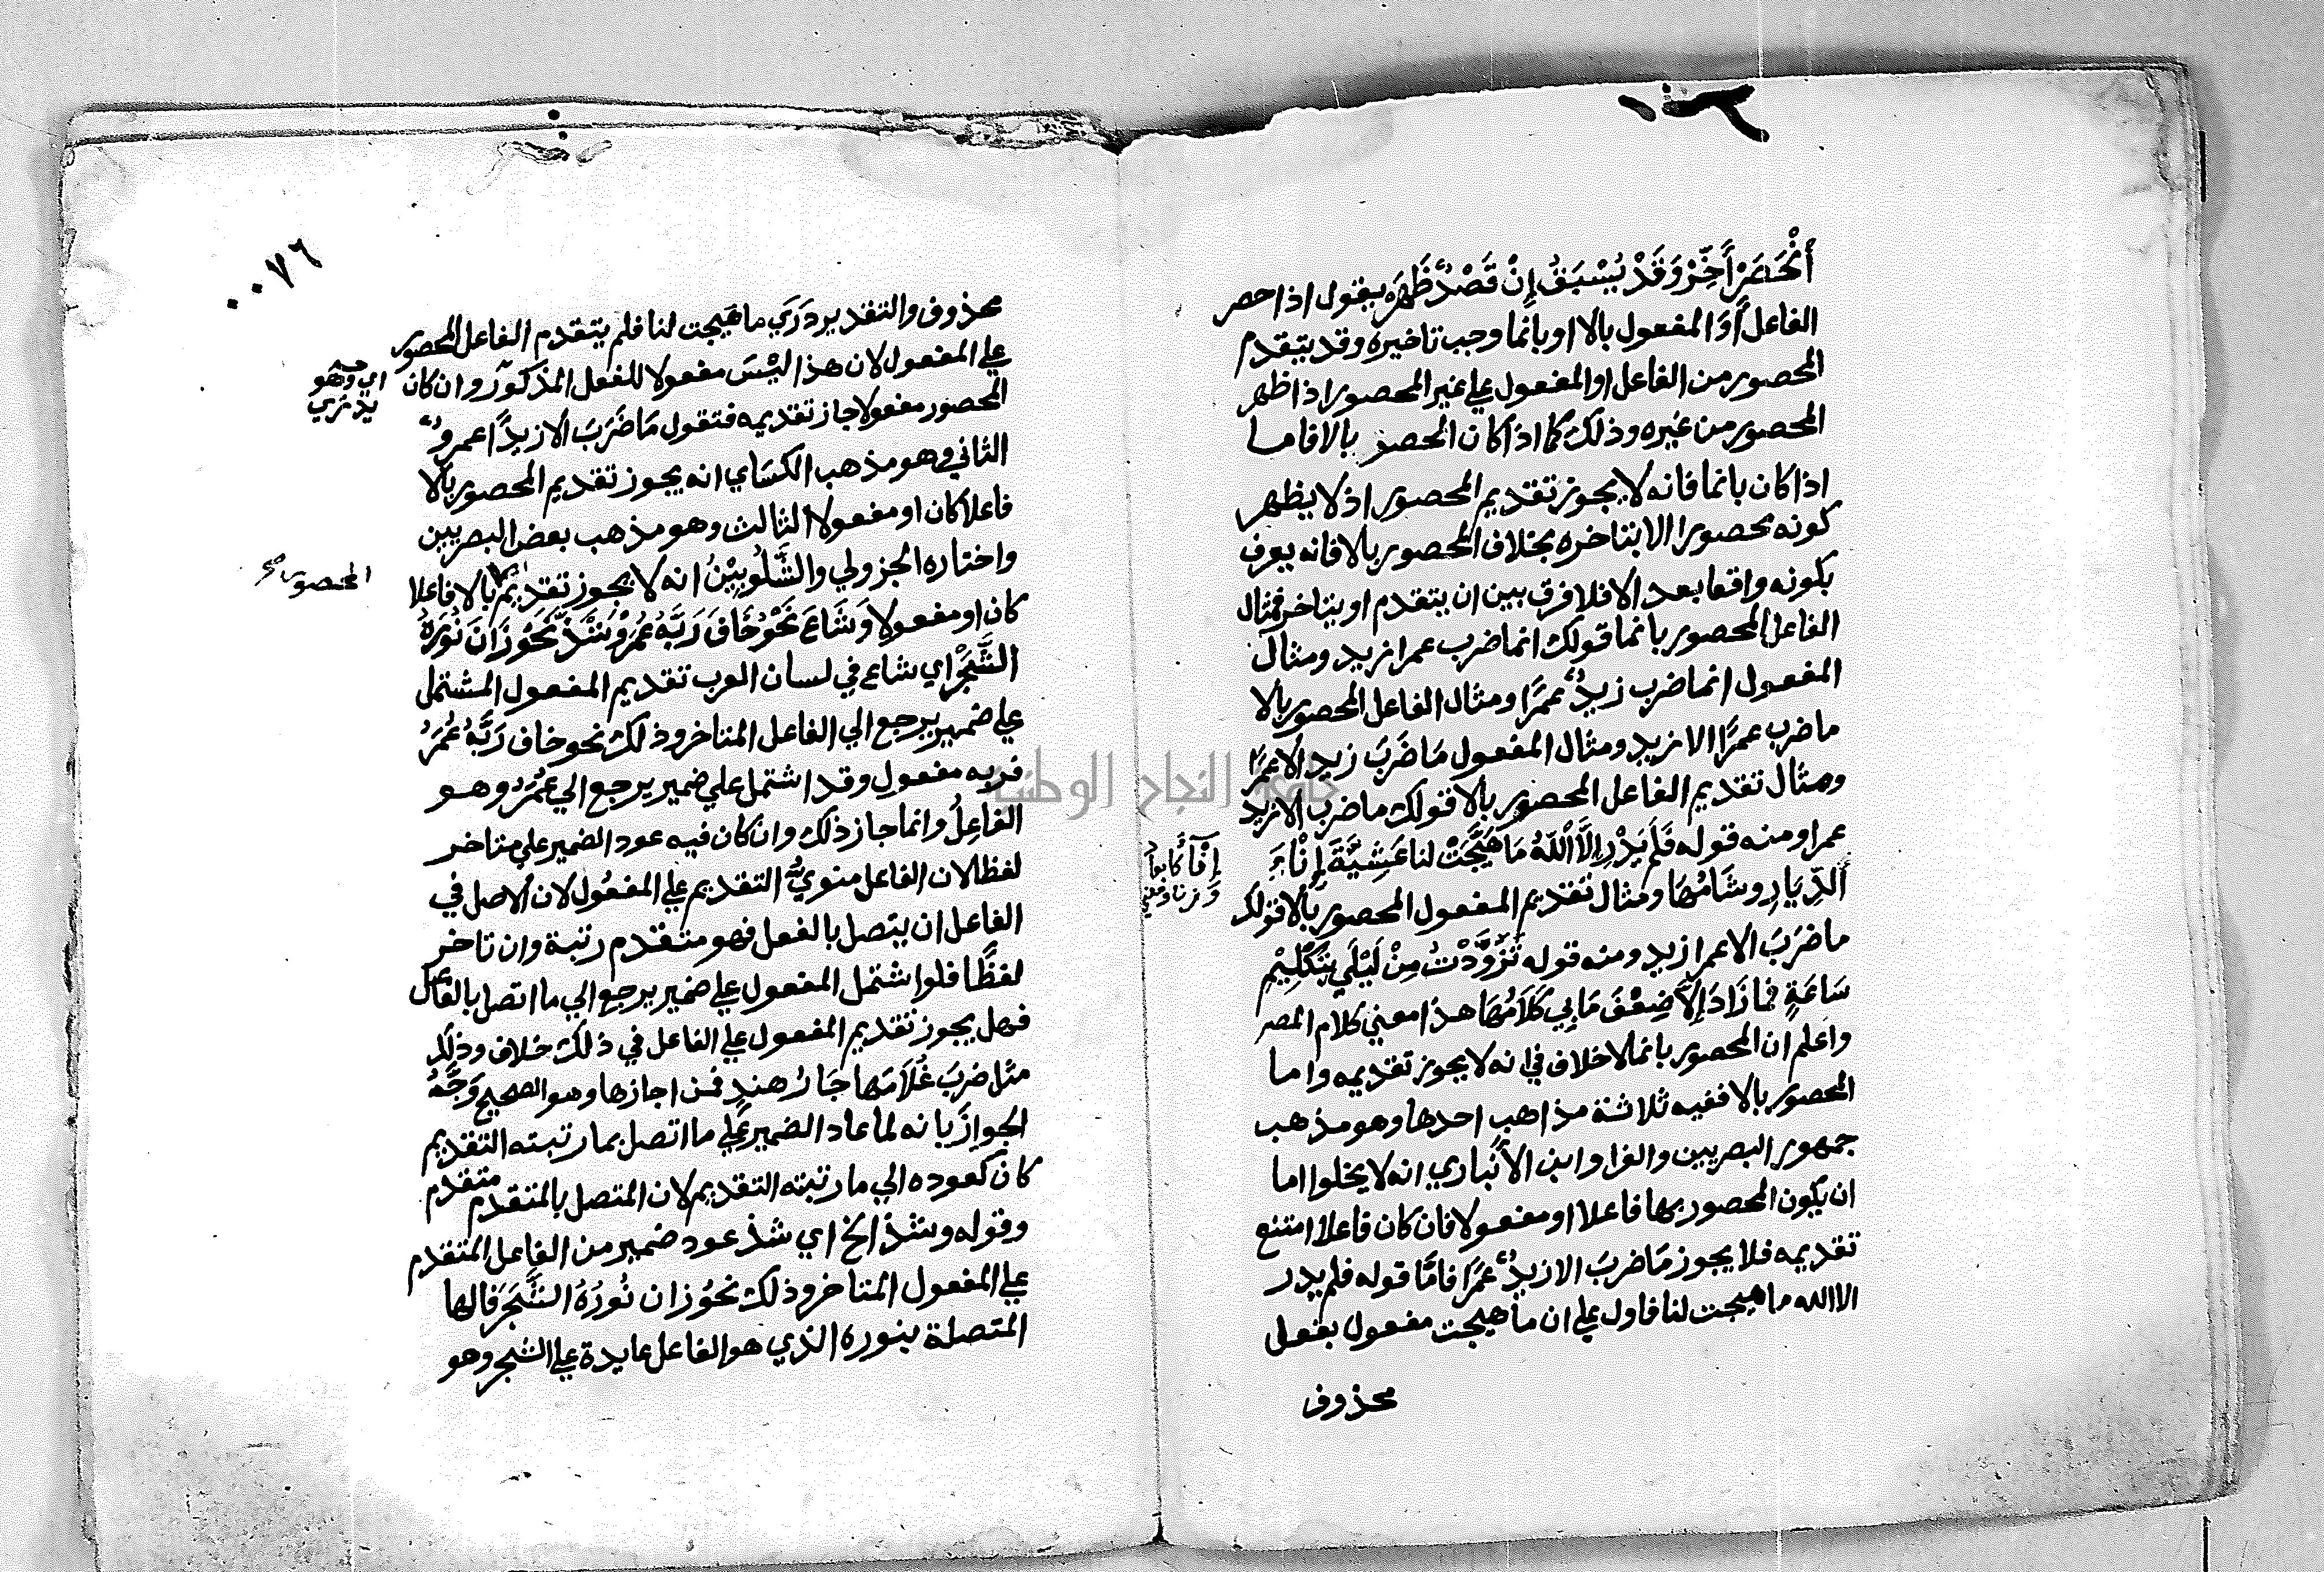 أنْحَصَرْ أَخِّرْ وَقَدْ يُسْبَقُ إِنْ قَصْدٌ ظَهَرْ يقول اذا حصر
الفاعل أوَ المفعول بالا او بانما وجب تاخيره وقد يتقدم
المحصور من الفاعل او المفعول علي غير المحصور اذا ظهر
المحصور من غيره وذلك كما اذا كان الحصر بالا فاما
اذا كان بانما فانه لا يجوز تقديم المحصور اذ لا يظهر
كونه محصورا الا بتاخره بخلاف المحصور بالا فانه يعرف
بكونه واقعا بعد الا فلا فرق بين ان يتقدم او يتاخر فمثال
الفاعل المحصور بانما قولك انما ضرب عمرا زيد ومثال
المفعول انما ضرب زيدٌ عمرًا ومثال الفاعل المحصور بالا
ما ضرب عمرًا الا زيد ومثال المفعول مَا ضَرَبَ زيد الا عمرًا
ومثال تقديم الفاعل المحصور بالا قولك ما ضرب الا زيد
عمرا ومنه قوله فَلَمْ يَدْرِ إِلَّا اللّهُ مَا هَيَّجَتْ لنا عَشِيَّةَ إِنْاءُ
الدِّيَارِ وشَامُهَا ومثال تقديم المفعول المحصور بالا قولك
ما ضرَبَ الا عمرا زيد ومنه قوله تَزَوَّدْتُ مِنْ لَيْلَي بِتَكْلِيْمِ
سَاعَةٍ فما زَادَ إِلَّا ضِعْفَ مَا بِي كَلَامُهَا هذا معني كلام المصر
واعلم ان المحصور بانما لا خلاف في انه لا يجوز تقديمه واما
المحصور بالا ففيه ثلاثة مذاهب احدها وهو مذهب
جمهور البصريين والفرا وابن الأنباري انه لا يخلوا اما
ان يكون المحصور بها فاعلا او مفعولا فان كان فاعلا امتنع
تقديمه فلا يجوز مَا ضربَ الا زيدٌ عمرًا فامَّا قوله فلم يدر
الا الله ما هيجت لنا فاول علي ان ما هيجت مفعول بفعل
محذوف
إنآ كابعا
وزنا ومعني
٠٠٧٦
محذوف والتقدير دَرَي ما هيجت لنا فلم يتقدم الفاعل المحصور
علي المفعول لان هذا ليْسَ مفعولا للفعل المذكور وان كان
المحصور مفعولا جاز تقديمه فتقول مَا ضَرَبَ الا زيدًا عمروٌ
الثاني وهو مذهب الكسَاي انه يجوز تقديم المحصور بالا
فاعلا كان او مفعولا الثالث وهو مذهب بعض البصريين
واختاره الجزولي والشَّلُوبِيْنُ انه لا يجوز تقديم بالا فاعلا
كان او مفعولا وَشَاعَ نَحْوُ خَافَ رَبَّهُ عُمَرْ وَشَذَّ نَحْوُ زَانَ نُوْرُهُ
الشَّجَرْ اي شاع في لسان العرب تقديم المفعول المشتمل
علي ضمير يرجع الي الفاعل المتاخر وذلك نحو خاف رَبَّهُ عُمَرُ
فربه مفعول وقد اشتمل علي ضمير يرجع الي عُمَرُ وهو
الفاعِلُ وانما جاز ذلك وان كان فيه عود الضمير علي متاخر
لفظا لان الفاعل منويُّ التقديم علي المفعول لان الاصل في
الفاعل ان يتصل بالفعل فهو متقدم رتبة وان تاخر
لفظًا فلو اشتمل المفعول علي ضمير يرجع الي ما اتصل بالفاعل
فهل يجوز تقديم المفعول علي الفاعل في ذلك خلاف وذلك
مثل ضربَ غُلَامَها جَارُ هندٍ فمن اجازها وهو الصحيح وَجَّهُ
الجوازَ بانه لما عاد الضمير علي ما اتصل بما رتبته التقديم
كان كعوده الي ما رتبته التقديم لان المتصل بالمتقدم متقدم
وقوله وشذ الخ اي شذ عود ضمير من الفاعل المتقدم
علي المفعول المتاخر وذلك نحوُ زان نُورُهُ الشَّجَرَ فالها
المتصلة بنوره الذي هو الفاعل عايدة علي الشجر وهو
المحصور صح